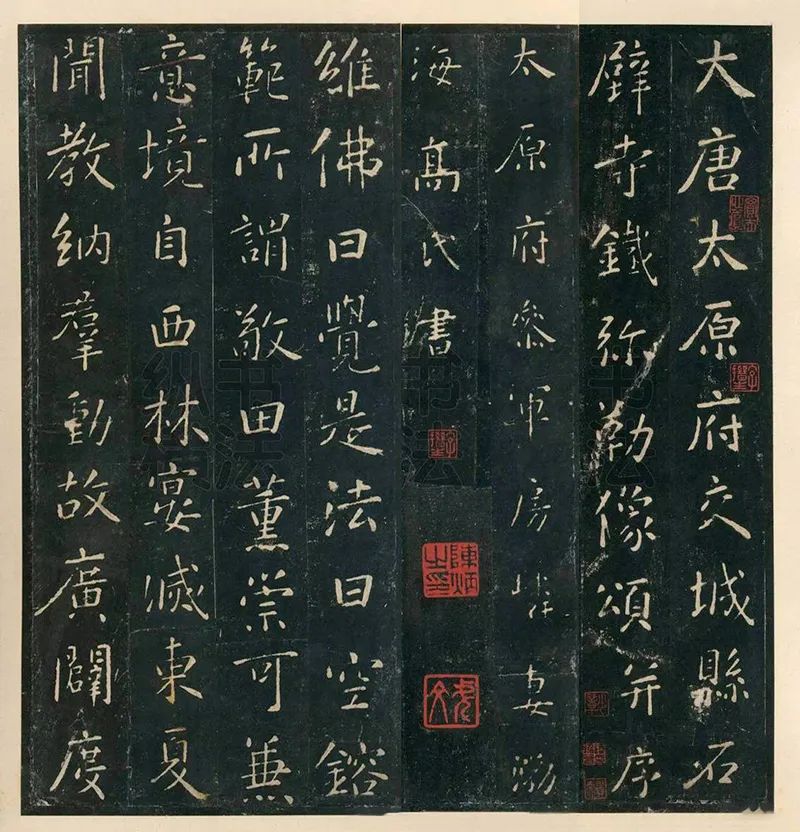 大唐太原府交城縣石
壁寺鐵弥勒像頌并序
太原府叅軍房璘妻渤
海髙氏書
維佛曰覺是法曰空鎔
範所謂敬田薰崇可兼
意境自西林宴滅東夏
聞教納羣動故廣闢度
书法
书法
书法